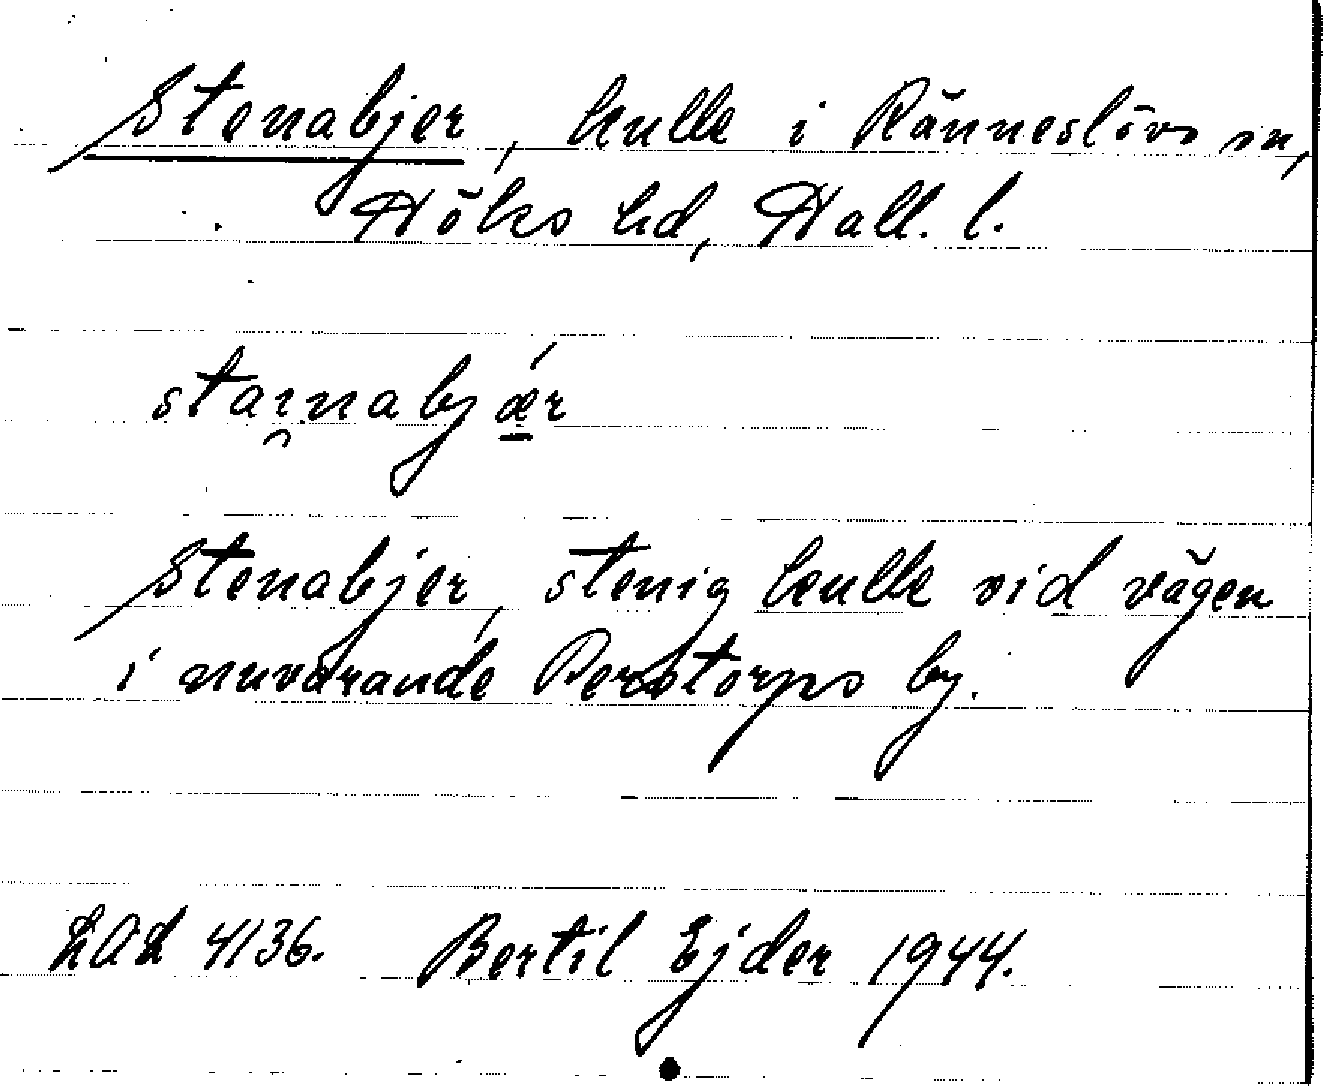 Stenabjer, kulle i Ränneslövs sn,
Höks hd, Hall. l.
stai̯nabjǽ̱r
Stenabjer, stenig kulle vid vägen
i nuvarande Perstorps by.
LAL 4136. Bertil Ejder 1944.